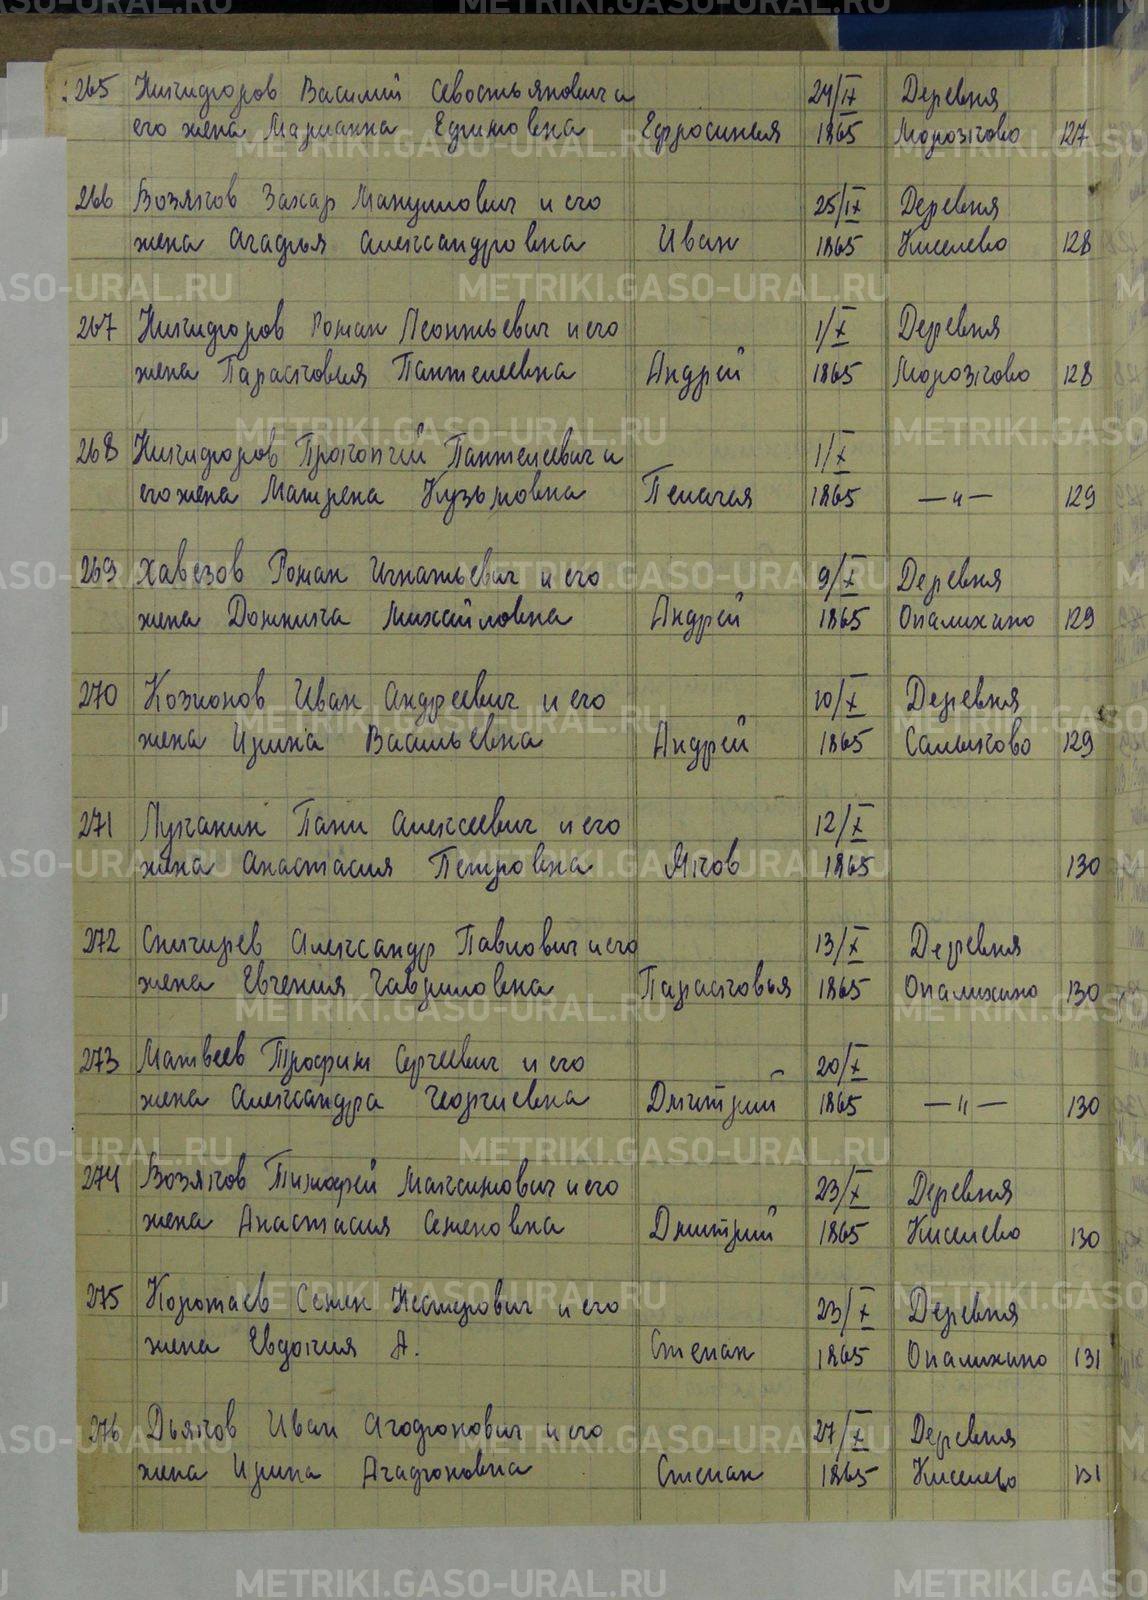 265 Никифоров Василий Севостьянович и 24/IX Деревня
его жена Марианна Ефимовна Ефросиния 1865 Морозково 127
266 Возяков Захар Мануилович и его 25/IX Деревня
жена Агафья Александровна Иван 1865 Киселево 128
267 Никифоров Роман Леонтьевич и его 1/X Деревня
жена Парасковия Пантелеевна Андрей 1865 Морозково 128
268 Никифоров Прокопий Пантелеевич и 1/X
его жена Матрена Кузьмовна Пелагея 1865 —"— 129
269 Хавезов Роман Игнатьевич и его 9/X Деревня
жена Домника Михайловна Андрей 1865 Опалихино 129
270 Козионов Иван Андреевич и его 10/X Деревня
жена Ирина Васильевна Андрей 1865 Салыково 129
271 Лужанин Галич Алексеевич и его 12/X
жена Анастасия Петровна Яков 1865 130
272 Снигирев Александр Павлович и его 13/X Деревня
жена Евгения Гавриловна Парасковья 1865 Опалихино 130
273 Матвеев Трофим Сергеевич и его 20/X
жена Александра Георгиевна Дмитрий 1865 —"— 130
274 Возяков Тимофей Максимович и его 23/X Деревня
жена Анастасия Семеновна Дмитрий 1865 Киселево 130
275 Коротаев Семен Нестерович и его 23/X Деревня
жена Евдокия А. Степан 1865 Опалихино 131
276 Дьяков Иван Агафонович и его 27/X Деревня
жена Ирина Агафоновна Степан 1865 Киселево 131
METRIKI.GASO-URAL.RU